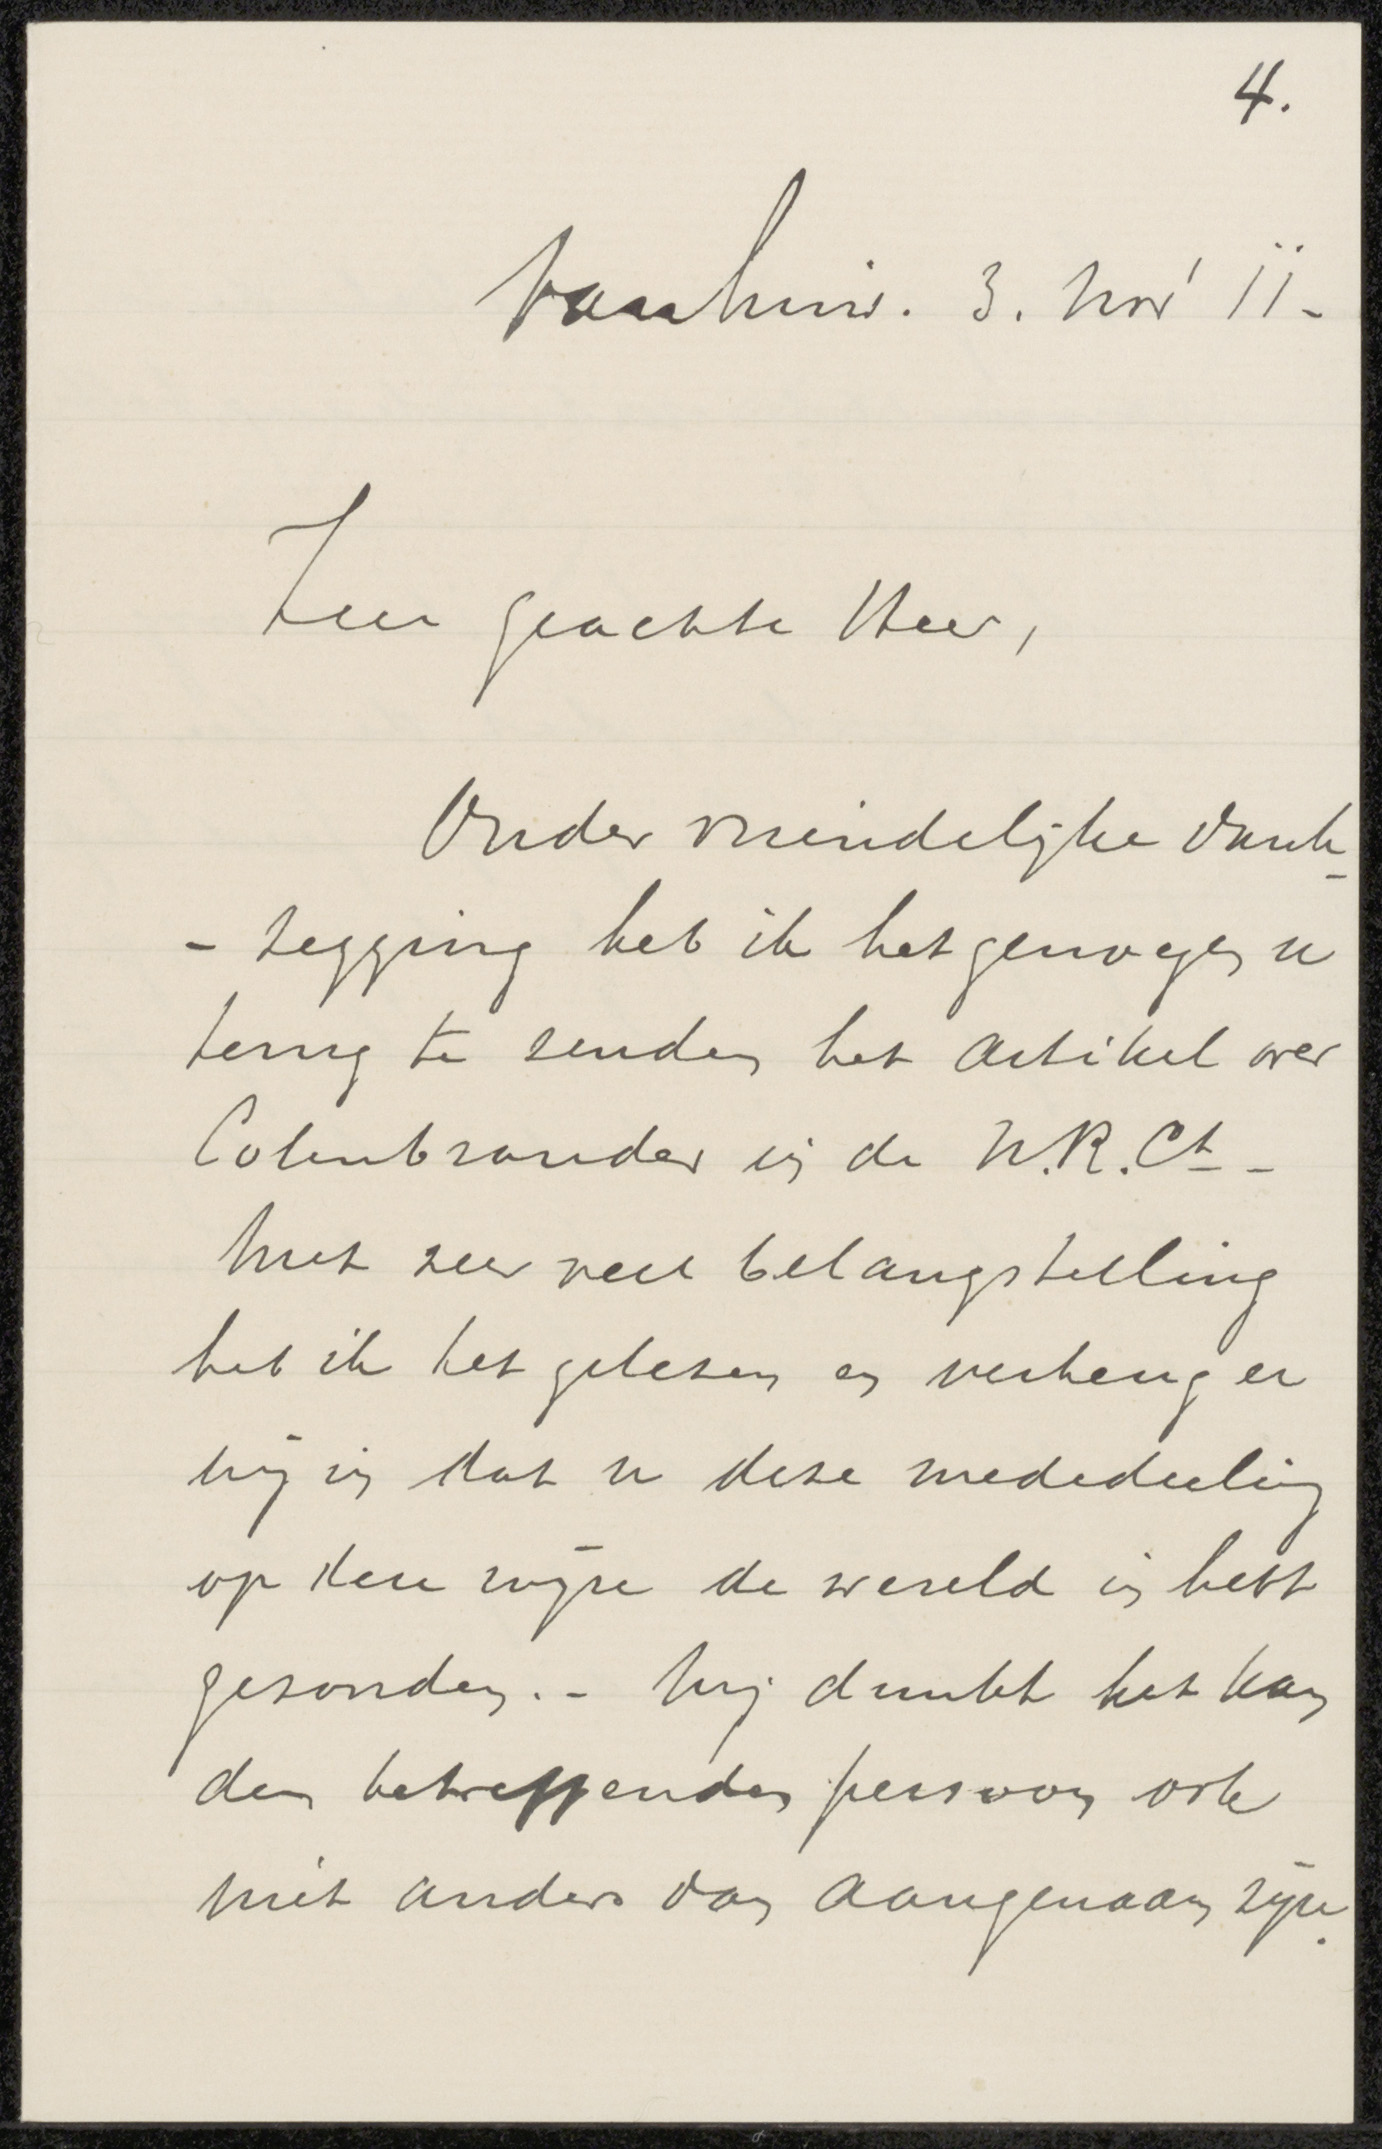 4.
3. Nov' 11-
Zeer geachte Heer,
Onder vriendelijke dank-
- zegging heb ik het genoegen u
terug te zenden het artikel over
Colenbrander in de N.R.Ct -
Met zeer veel belangstelling
heb ik het gelezen en verheug er
mij in dat u deze mededeeling
op deze wijze de wereld in hebt
gezonden. - Mij dunkt het kan
den betreffenden persoon ook
niet anders dan aangenaam zijn.